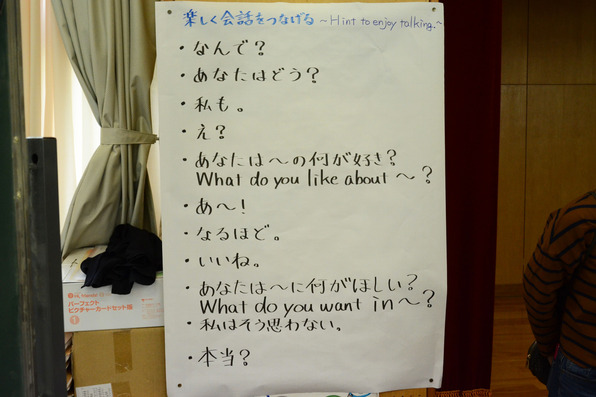 楽しく会話をつなげる ～Hint to enjoy talking.～
・なんで？
・あなたはどう？
・私も。
・え？
・あなたは～の何が好き？
What do you like about ～？
・あ～！
・なるほど。
・いいね。
・あなたは～に何がほしい？
What do you want in ～？
・私はそう思わない。
・本当？
パーフェクト
ピクチャーカードセット版
1